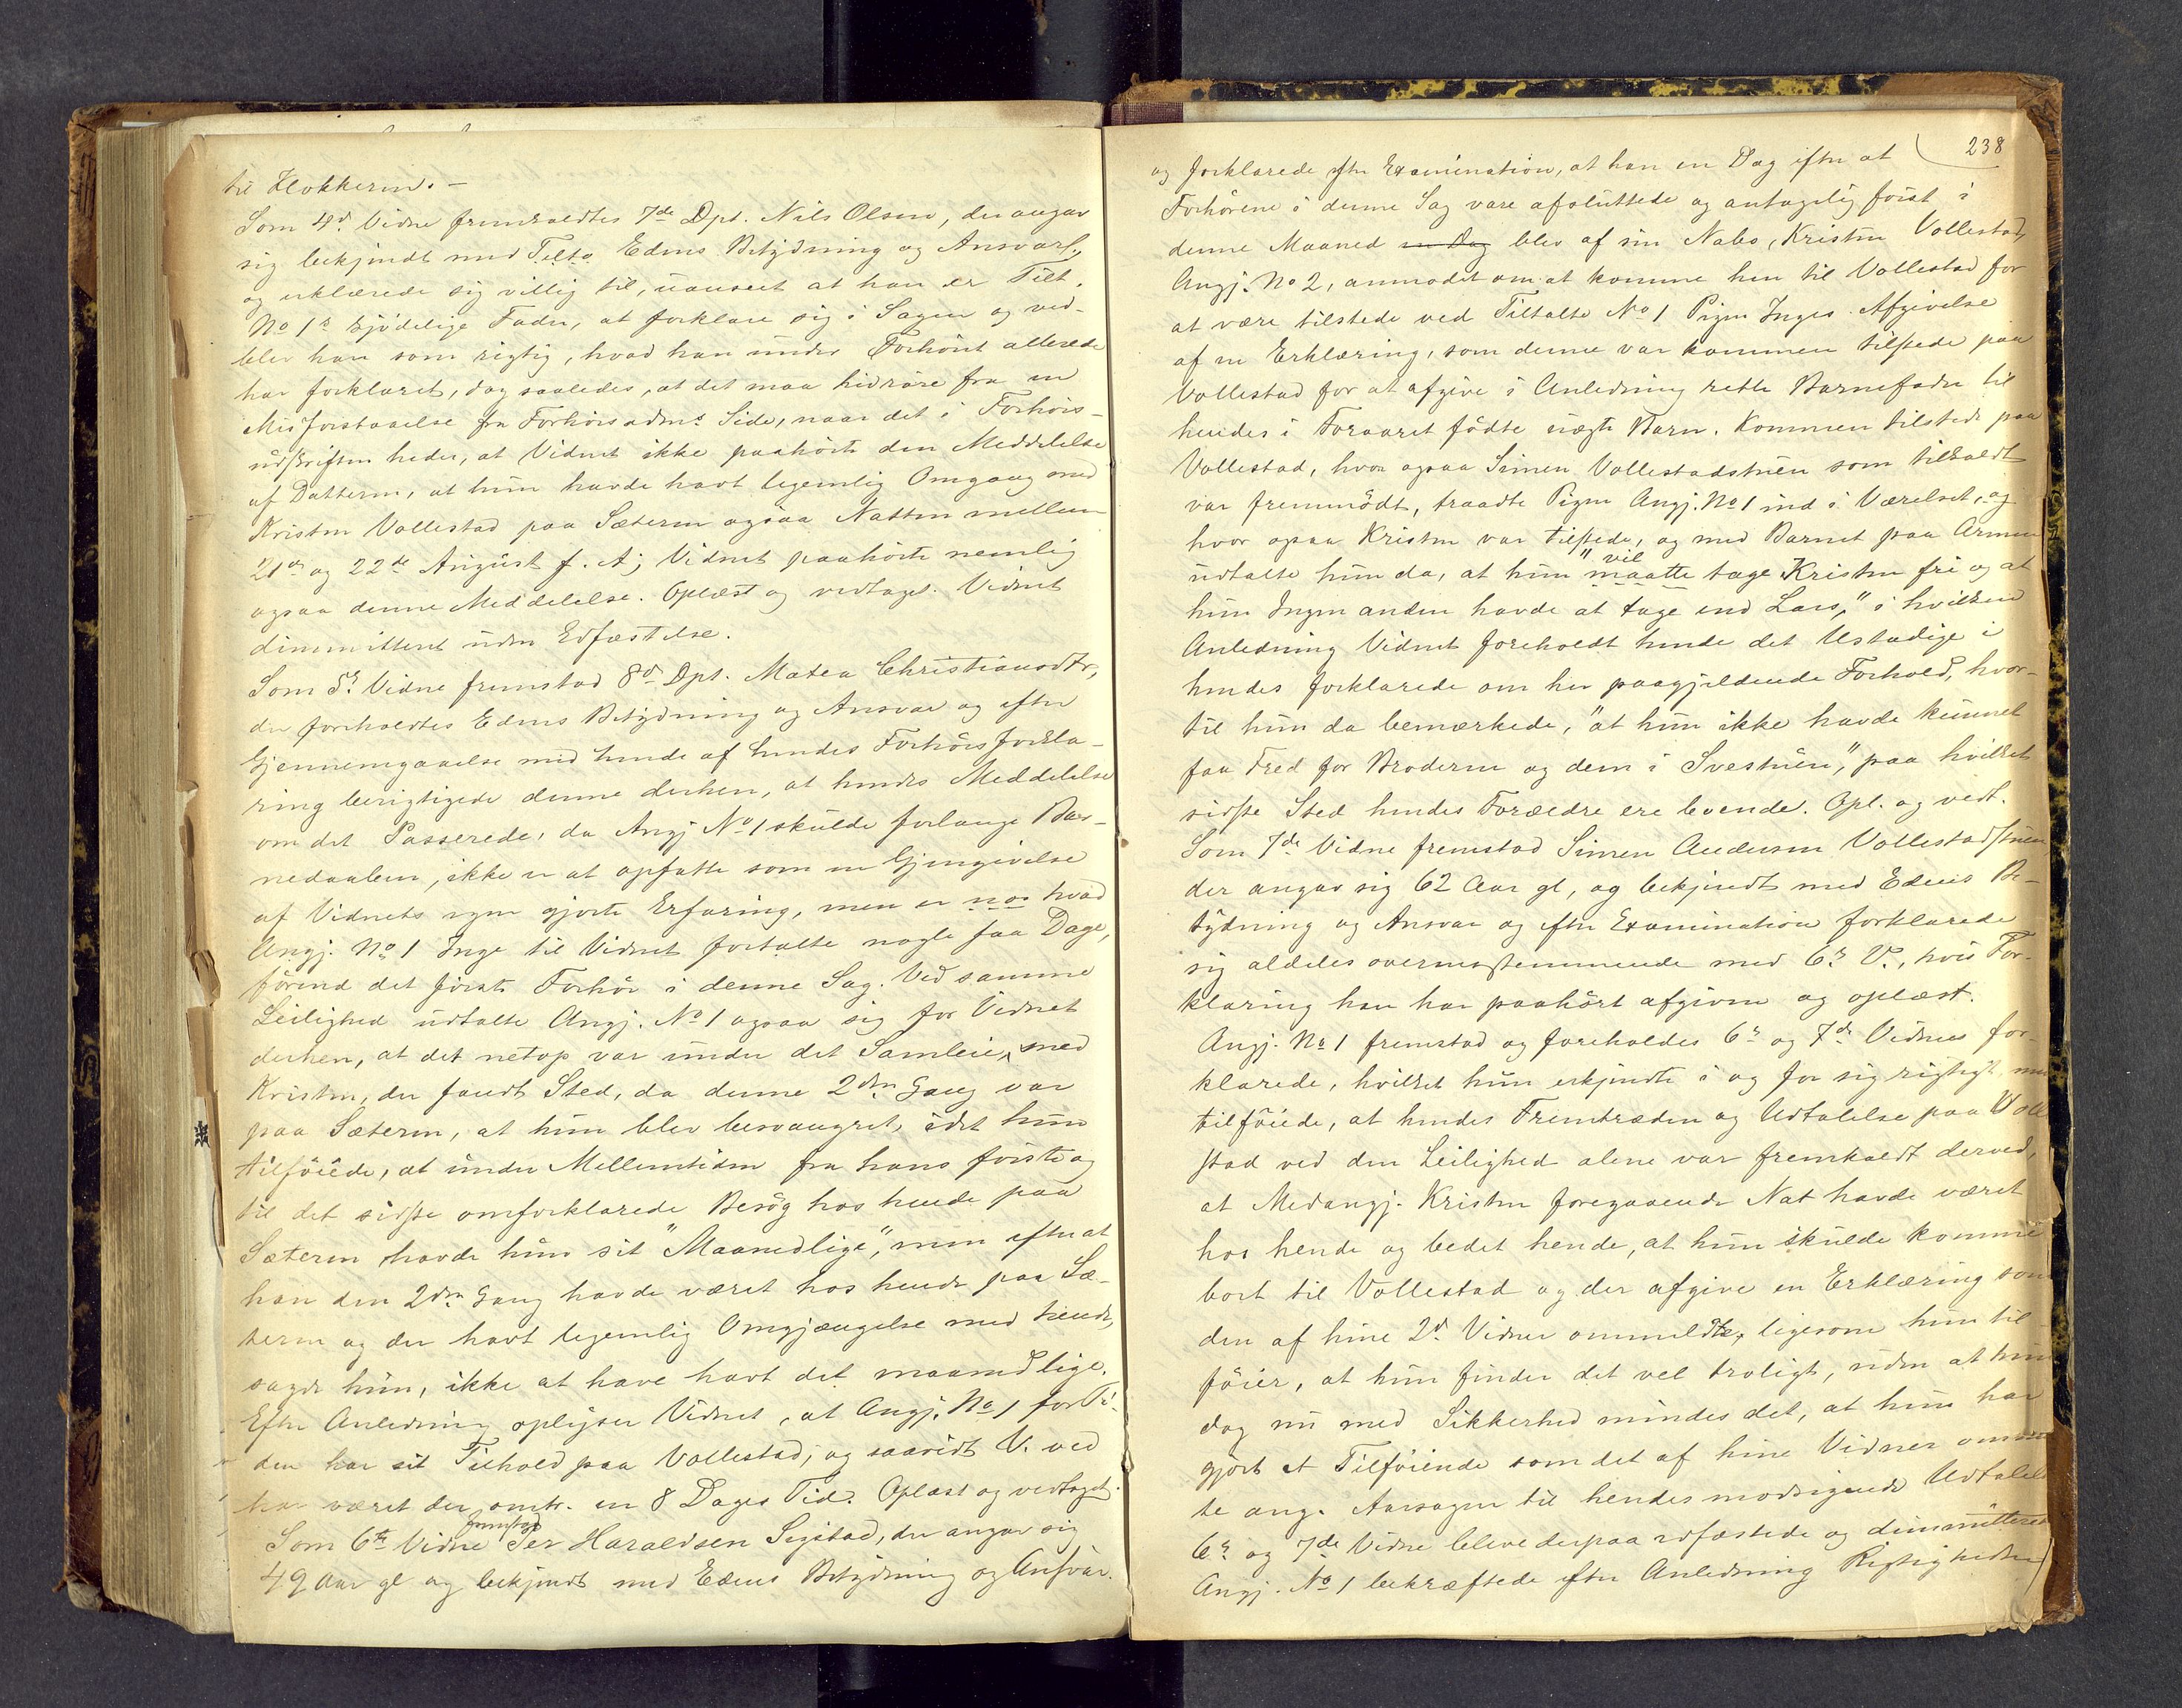 til Klokkeren. –
Som 4d. Vidne fremkaldtes 7de Dpt. Nils Olsen, der angav
sig bekjendt med Tilt. Edens Betydning og Ansvars,
og erklærede sig villig til, uanseet at han er Tilt.
No 1s kjødelige Fader, at forklare sig i Sagen og ved-
blev han som rigtig, hvad han under Forhöret allerede
har forklaret, dog saaledes, at det maa hidröre fra en
Misforstaaelse fra Forhörsadms Side, naar det i Forhörs-
udskriften heder, at Vidnet ikke paahörte den Meddelelse
af Datteren, at hun havde havt legemlig Omgang med
Kristen Vollestad paa Sæteren ogsaa Natten mellem
21de og 22de August f. A; Vidnet paahörte nemlig
ogsaa denne Meddelelse. Oplæst og vedtaget. Vidnet
dimmitteret uden Edfæstelse.
Som 5te Vidne fremstod 8de Dpt. Matea Christiansdtr,
der foreholdtes Edens Betydning og Ansvar og efter
Gjennemgaaelse med hende af hendes Forhörsforkla-
ring berigtigede denne derhen, at hendes Meddelelse
om det Passerede, da Angj No 1 skulde forlange Bar-
nedaaben, ikke er at opfatte som en Gjengivelse
af Vidnets egen gjorte Erfaring, men er noe hvad
Angj. No 1 Inge til Vidnet fortalte nogle faa Dage,
förend det förste Forhör i denne Sag. Ved samme
Leilighed udtalte Angj. No 1 ogsaa sig for Vidnet
derhen, at det netop var under det Samleie, med
Kristen, der fandt Sted, da denne 2den Gang var
paa Sæteren, at hun blev besvangret, idet hun
tilföiede, at under Mellemtiden fra hans förste og
til det sidste omforklarede Besög hos hende paa
Sæteren havde hun sit "Maanedlige", men efter at
han den 2den Gang havde været hos hende paa Sæ-
teren og der havt legemlig Omgjængelse med hende,
sagde hun, ikke at have havt det maanedlige.
Efter Anledning oplyser Vidnet, at Angj. No 1 for Ti-
den har sit Tilhold paa Vollestad, og saavidt V. ved
har været der omtr. en 8 Dages Tid. Oplæst og vedtaget.
Som 6te Vidne fremstod Per Haraldsen Sigstad, der angav sig
49 Aar gl og bekjendt med Edens Betydning og Ansvar.
238
og forklarede efter Examination, at han en Dag efter at
Forhörene i denne Sag vare afsluttede og antagelig först i
denne Maaned en Dag blev af sin Nabo, Kristen Vollestad,
Angj. No 2, anmodet om at komme hen til Vollestad for
at være tilstede ved Tiltalte No 1 Pigen Inges Afgivelse
af en Erklæring, som denne var kommen tilstede paa
Vollestad for at afgive i Anledning rette Barnefader til
hendes i Foraaret födte uægte Barn. Kommen tilstede paa
Vollestad, hvor ogsaa Simen Vollestadstuen som tilkaldt
var fremmödt, traadte Pigen Angj. No 1 ind i Værelset, og
hvor ogsaa Kristen var tilstede, og med Barnet paa Armen
udtalte hun da, at hun "vil maatte tage Kristen fri og at
hun Ingen anden havde at tage end Lars," i hvilken
Anledning Vidnet foreholdt hende det Ustadige i
hendes forklarede om her paagjeldende Forhold, hvor-
til hun da bemærkede, "at hun ikke havde kunnet
faa Fred for Broderen og dem i Svestuen", paa hvilket
sidste Sted hendes Forældre ere boende. Opl. og vedt.
Som 7de Vidne fremstod Simen Andersen Vollestadstuen
der angav sig 62 Aar gl, og bekjendt med Edens Be-
tydning og Ansvar og efter Examination forklarede
sig aldeles overensstemmende med 6te V., hvis For-
klaring han har paahört afgiven og oplæst.
Angj. No 1 fremstod og foreholdes 6te og 7de Vidnes for-
klarede, hvilket hun erkjendte i og for sig rigtigt men
tilföiede, at hendes Fremtræden og Udtalelse paa Volle
stad ved den Leilighed alene var fremkaldt derved,
at Medangj. Kristen foregaaende Nat havde været
hos hende og bedet hende, at hun skulde komme
bort til Vollestad og der afgive en Erklæring som
den af hine 2de Vidner ommeldte, ligesom hun til-
föier, at hun finder det vel troligt, uden at hun
dog nu med Sikkerhed mindes det, at hun har
gjort et Tilföiende som det af hine Vidner omme
te ang. Aarsagen til hendes modsigende Udtalels
6te og 7de Vidne bleve derpaa edfæstede og dimmitteret
Angj. No 1 bekræftede efter Anledning Rigtigheden